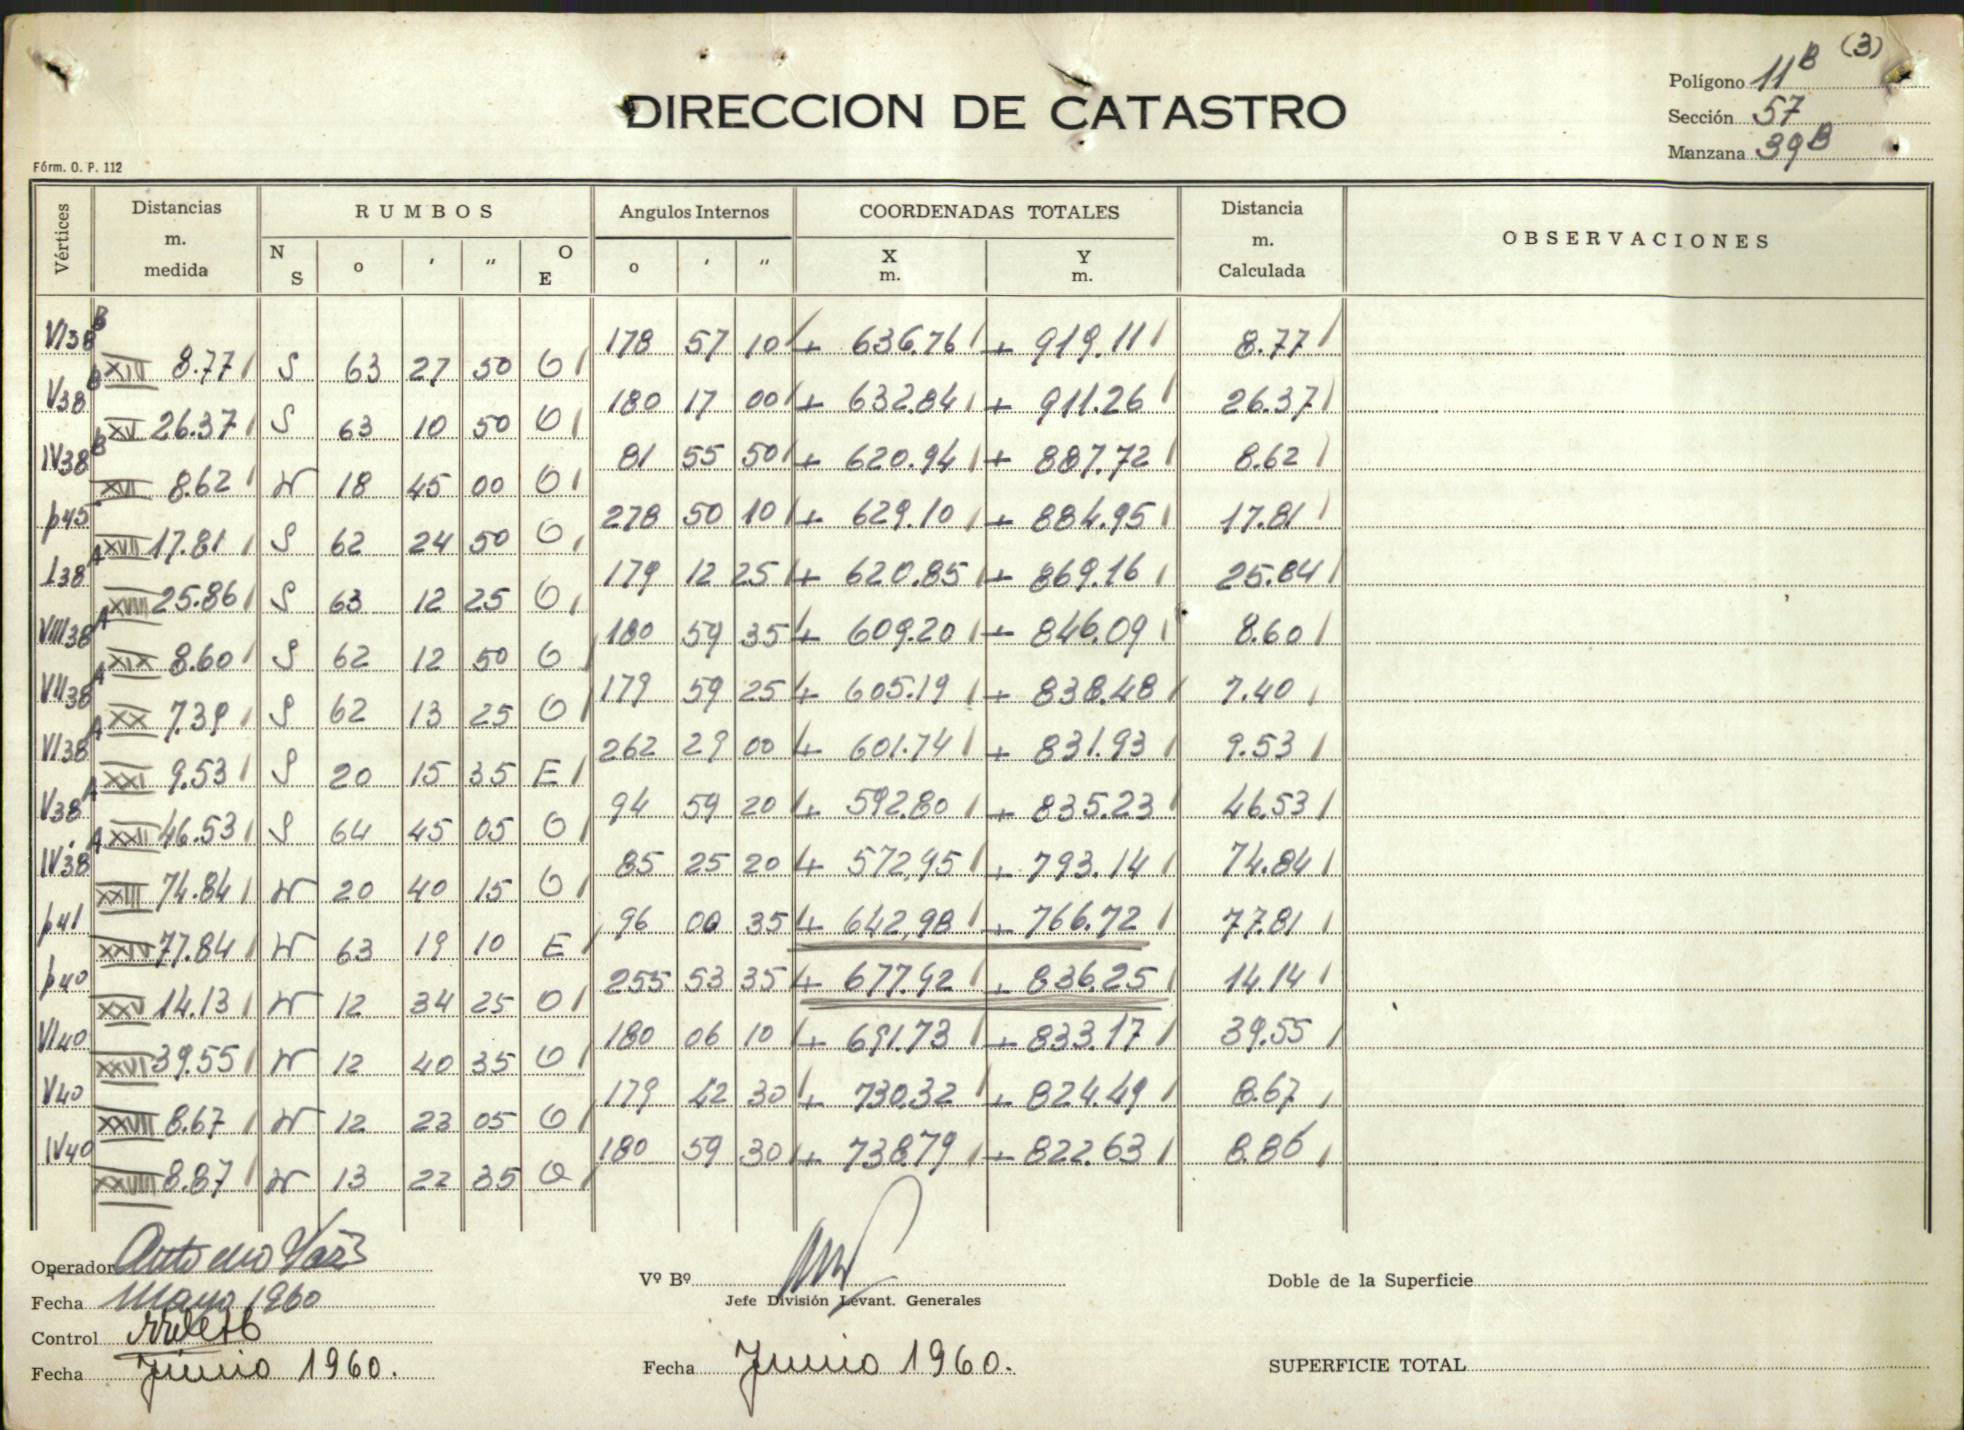 (3)
Polígono 11 B
DIRECCION DE CATASTRO
Sección 57
Manzana 39 B
Fórm. O. P. 112
Vértices Distancias m. medida RUMBOS Angulos Internos COORDENADAS TOTALES Distancia m. Calculada OBSERVACIONES
N S o ' " O E o ' " X m. Y m.
VI 38 B 178 57 10 + 636.76 + 919.11 8.77
XIV 8.77 S 63 27 50 O
V 38 B 180 17 00 + 632.84 + 911.26 26.37
XV 26.37 S 63 10 50 O
IV 38 B 81 55 50 + 620.94 + 887.72 8.62
XVI 8.62 N 18 45 00 O
p45 278 50 10 + 629.10 + 884.95 17.81
XVII 17.81 S 62 24 50 O
I 38 A 179 12 25 + 620.85 + 869.16 25.84
XVIII 25.86 S 63 12 25 O
VIII 38 A 180 59 35 + 609.20 + 846.09 8.60
XIX 8.60 S 62 12 50 O
VII 38 A 179 59 25 + 605.19 + 838.48 7.40
XX 7.39 S 62 13 25 O
VI 38 A 262 29 00 + 601.74 + 831.93 9.53
XXI 9.53 S 20 15 35 E
V 38 A 94 59 20 + 592.80 + 835.23 46.53
XXII 46.53 S 64 45 05 O
IV 38 A 85 25 20 + 572,95 + 793.14 74.84
XXIII 74.84 N 20 40 15 O
p41 96 00 35 + 642,98 + 766.72 77.81
XXIV 77.84 N 63 19 10 E
p40 255 53 35 + 677.92 + 836.25 14.14
XXV 14.13 N 12 34 25 O
VI 40 180 06 10 + 691.73 + 833.17 39.55
XXVI 39.55 N 12 40 35 O
V 40 179 42 30 + 730.32 + 824.49 8.67
XXVII 8.67 N 12 23 05 O
IV 40 180 59 30 + 738.79 + 822.63 8.86
XXVIII 8.87 N 13 22 35 O
Operador
Fecha Mayo 1960
Vº Bº
Doble de la Superficie
Jefe División Levant. Generales
Control
Fecha Junio 1960.
Fecha Junio 1960.
SUPERFICIE TOTAL